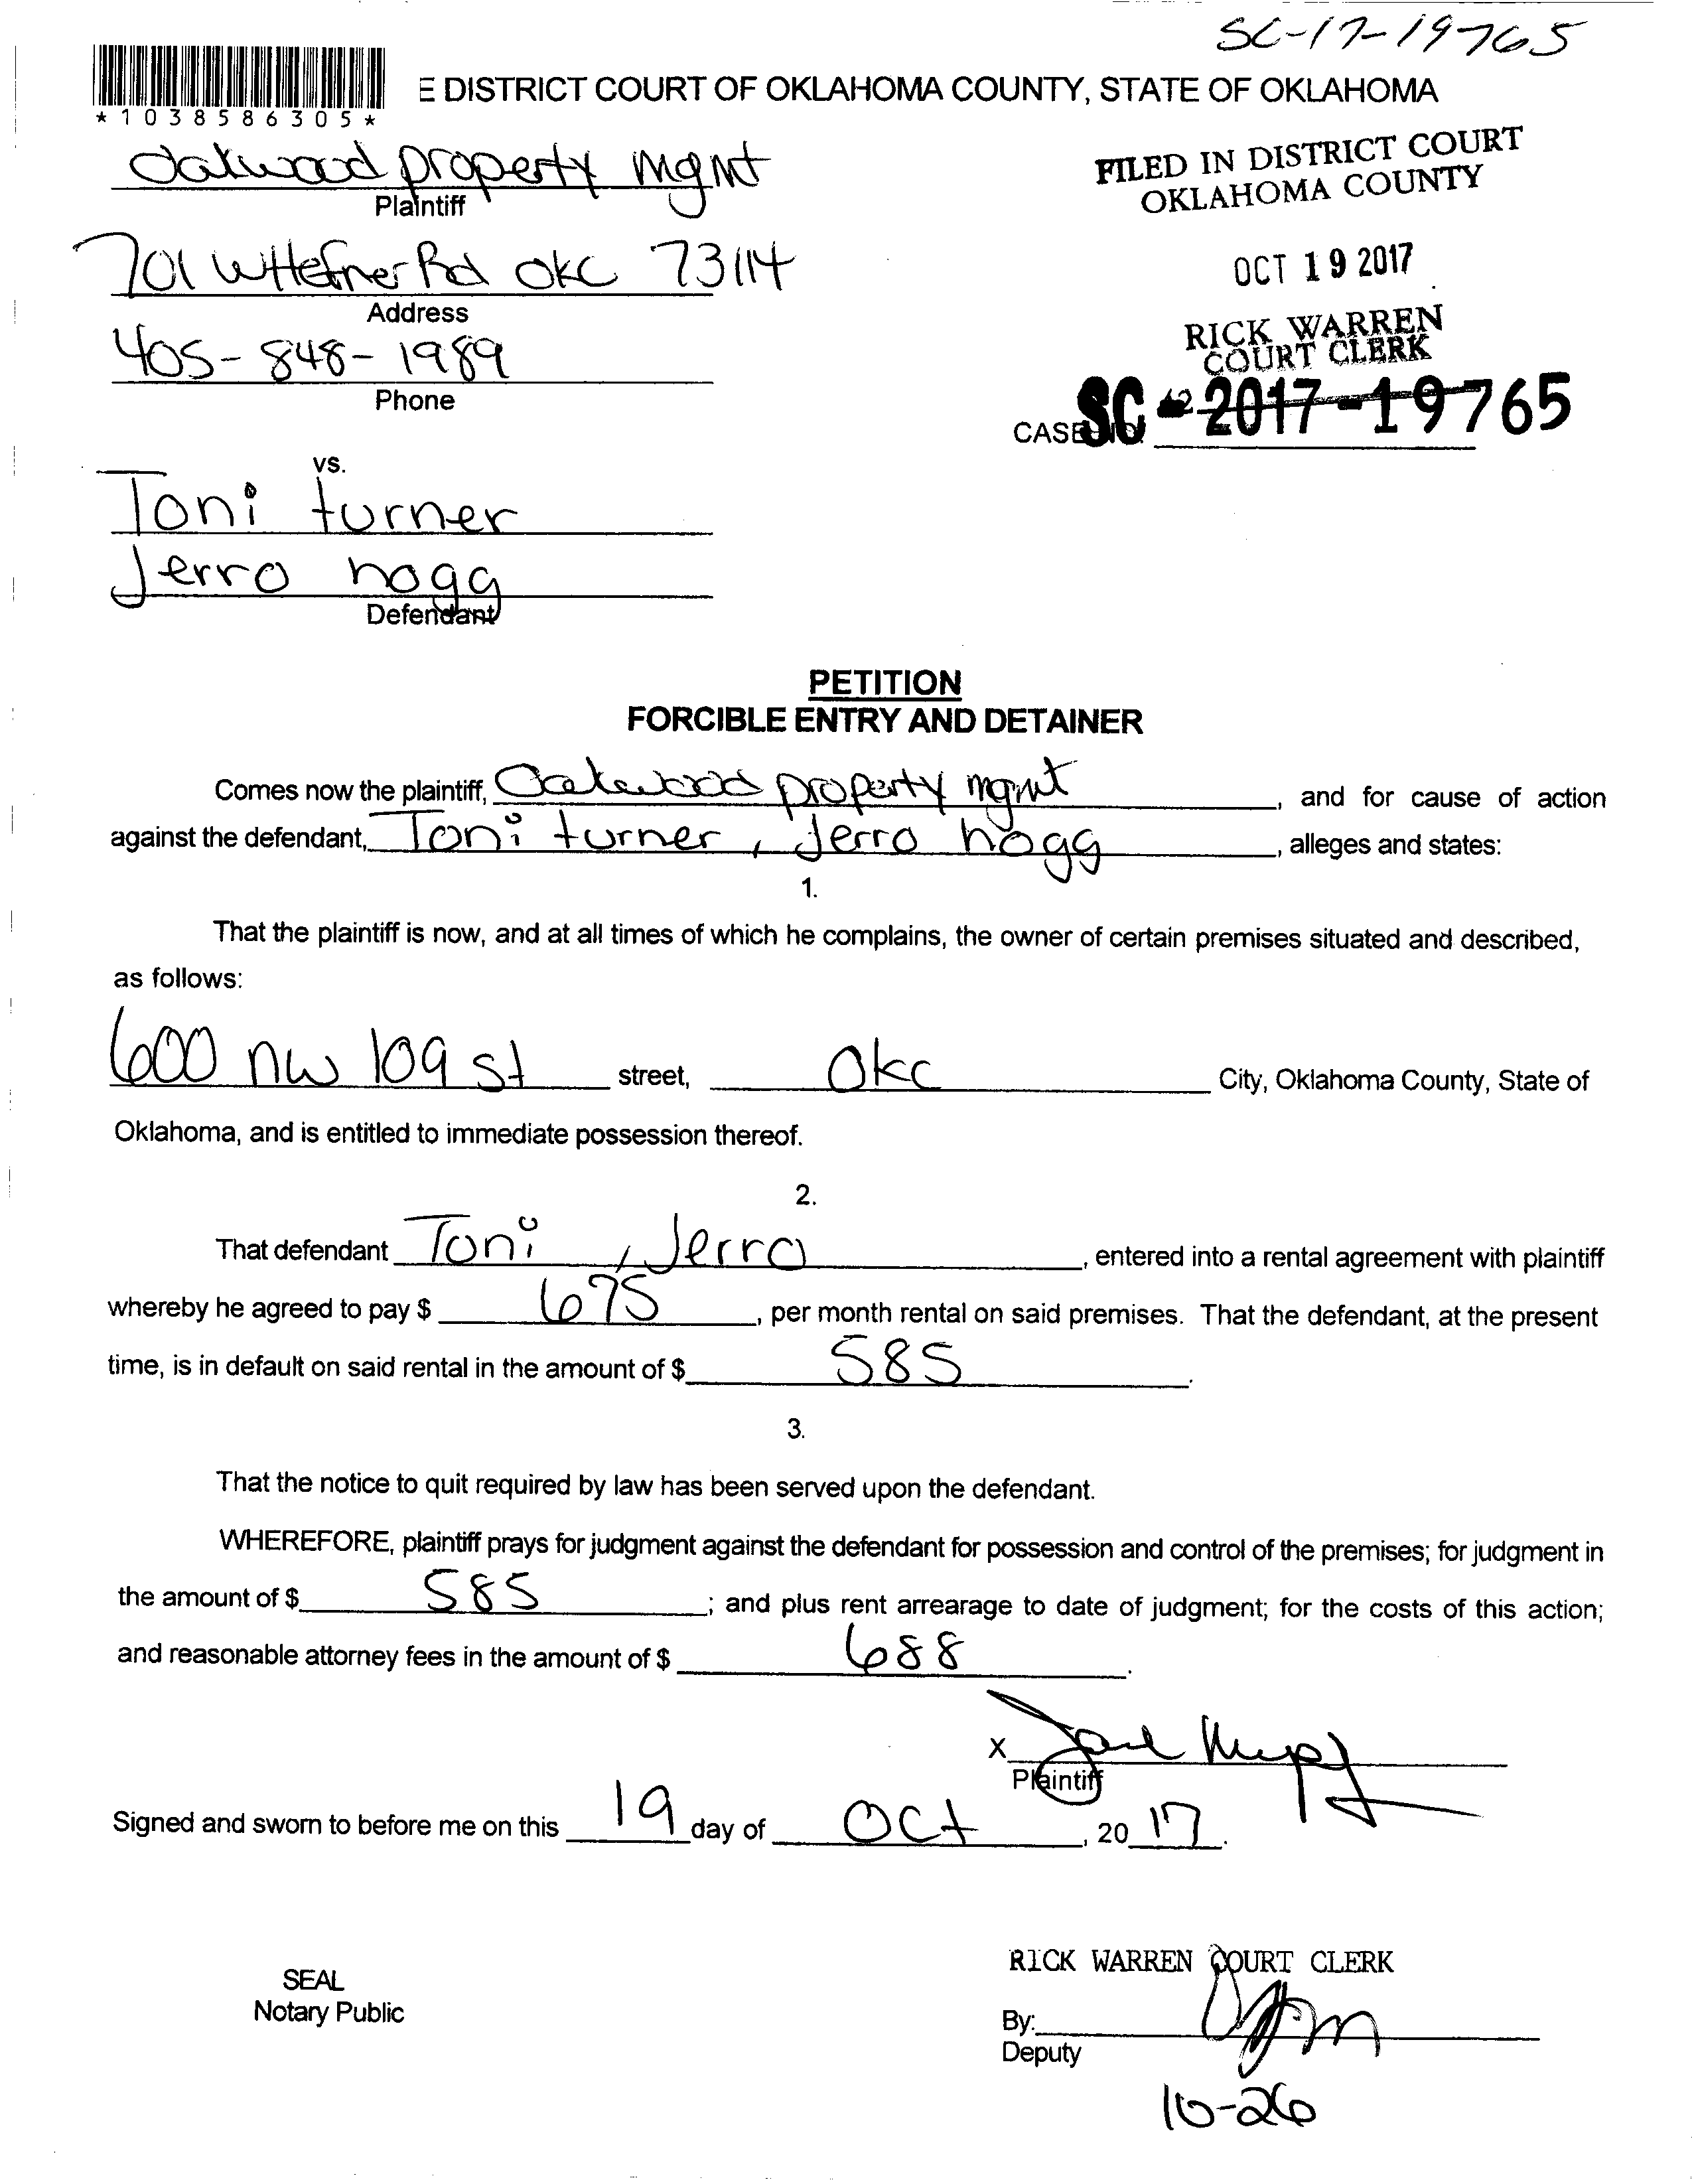 SC-17-19765
E DISTRICT COURT OF OKLAHOMA COUNTY, STATE OF OKLAHOMA
*1038586305*
Oakwood property mgmt
Plaintiff
FILED IN DISTRICT COURT
OKLAHOMA COUNTY
701 W Hefner Rd OKC 73114
Address
OCT 19 2017
405-848-1989
Phone
RICK WARREN
COURT CLERK
CASE NO. SC-2017-19765
vs.
Toni turner
Jerro hogg
Defendant
PETITION
FORCIBLE ENTRY AND DETAINER
Comes now the plaintiff, Oakwood property mgmt, and for cause of action
against the defendant, Toni turner, Jerro hogg, alleges and states:
1.
That the plaintiff is now, and at all times of which he complains, the owner of certain premises situated and described,
as follows:
600 nw 109 st street, Okc City, Oklahoma County, State of
Oklahoma, and is entitled to immediate possession thereof.
2.
That defendant Toni, Jerro, entered into a rental agreement with plaintiff
whereby he agreed to pay $ 675, per month rental on said premises. That the defendant, at the present
time, is in default on said rental in the amount of $ 585.
3.
That the notice to quit required by law has been served upon the defendant.
WHEREFORE, plaintiff prays for judgment against the defendant for possession and control of the premises; for judgment in
the amount of $ 585; and plus rent arrearage to date of judgment; for the costs of this action;
and reasonable attorney fees in the amount of $ 688.
X
Plaintiff
Signed and sworn to before me on this 19 day of Oct, 2017.
RICK WARREN COURT CLERK
SEAL
Notary Public
By:
Deputy
10-26